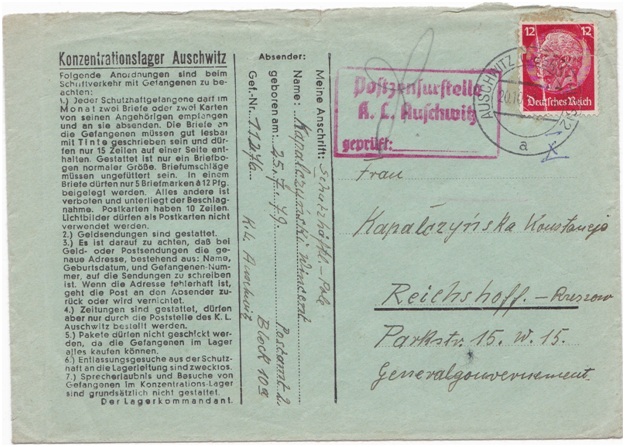 Konzentrationslager Auschwitz
Folgende Anordnungen sind beim
Schriftverkehr mit Gefangenen zu be-
achten:
1.) Jeder Schutzhaftgefangene darf im
Monat zwei Briefe oder zwei Karten
von seinen Angehörigen empfangen
und an sie absenden. Die Briefe an
die Gefangenen müssen gut lesbar
mit Tinte geschrieben sein und dür-
fen nur 15 Zeilen auf einer Seite ent-
halten. Gestattet ist nur ein Briefbo-
gen normaler Größe. Briefumschläge
müssen ungefüttert sein. In einem
Briefe dürfen nur 5 Briefmarken à 12 Pfg.
beigelegt werden. Alles andere ist
verboten und unterliegt der Beschlag-
nahme. Postkarten haben 10 Zeilen.
Lichtbilder dürfen als Postkarten nicht
verwendet werden.
2.) Geldsendungen sind gestattet.
3.) Es ist darauf zu achten, daß bei
Geld- oder Postsendungen die ge-
naue Adresse, bestehend aus: Name,
Geburtsdatum, und Gefangenen-Num-
mer, auf die Sendungen zu schreiben
ist. Wenn die Adresse fehlerhaft ist,
geht die Post an den Absender zu-
rück oder wird vernichtet.
4.) Zeitungen sind gestattet, dürfen
aber nur durch die Poststelle des K. L.
Auschwitz bestellt werden.
5.) Pakete dürfen nicht geschickt wer-
den, da die Gefangenen im Lager
alles kaufen können.
6.) Entlassungsgesuche aus der Schutz-
haft an die Lagerleitung sind zwecklos.
7.) Sprecherlaubnis und Besuche von
Gefangenen im Konzentrations-Lager
sind grundsätzlich nicht gestattet.
Der Lagerkommandant.
Absender:
Meine Anschrift: Schutzhäftl.-Pole
Name: Kapałczyński
geboren am: 25.
Gef.-Nr. 11276
Postamt 2.
Block 10a
K.L. Auschwitz
Postzensurstelle
K. L. Auschwitz
geprüft:
12 12
Deutsches Reich
AUSCHWITZ
a
Frau
Kapałczyńska Konstancja
Reichshoff.-Rzeszow
Parkstr. 15. W. 15.
Generalgouvernement.